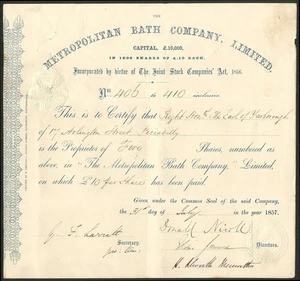 THE
METROPOLITAN BATH COMPANY, LIMITED.
CAPITAL, £10,000,
IN 1000 SHARES OF £10 EACH.
Incorporated by virtue of The Joint Stock Companies' Act, 1856.
Nos 406 to 410 inclusive
This is to Certify that Right Honble The Earl of Yarborough
of 17 Arlington Street Piccadilly
is the Proprietor of Five Shares, numbered as
above, in "The Metropolitan Bath Company," Limited,
on which £10 per Share has been paid.
Given under the Common Seal of the said Company,
the 31st day of July of the year 1857.
Donald Nicoll
Secretary.
Directors.